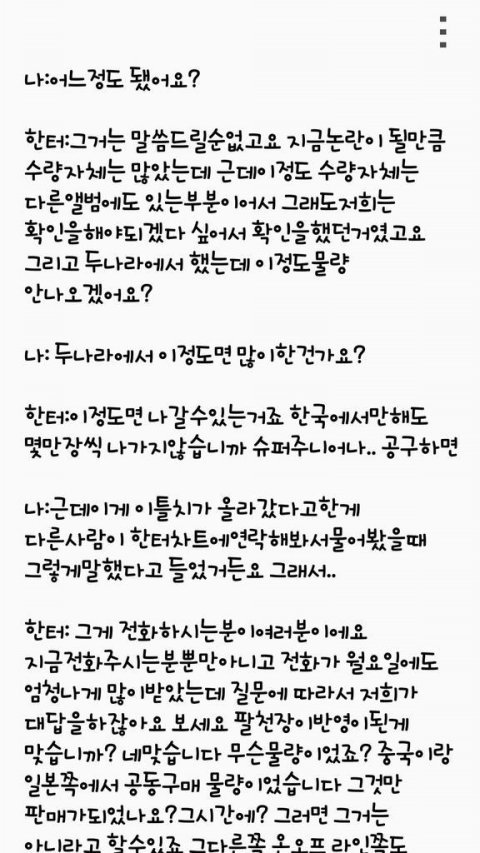 나:어느정도 됐어요?
한터:그거는 말씀드릴순없고요 지금논란이 될만큼
수량자체는 많았는데 근데이정도 수량자체는
다른앨범에도 있는부분이어서 그래도저희는
확인을해야되겠다 싶어서 확인을했던거였고요
그리고 두나라에서 했는데 이정도물량
안나오겠어요?
나: 두나라에서 이정도면 많이한건가요?
한터:이정도면 나갈수있는거죠 한국에서만해도
몇만장씩 나가지않습니까 슈퍼주니어나.. 공구하면
나:근데이게 이틀치가 올라갔다고한게
다른사람이 한터차트에연락해봐서물어봤을때
그렇게말했다고 들었거든요 그래서..
한터: 그게 전화하시는분이여러분이에요
지금전화주시는분뿐만아니고 전화가 월요일에도
엄청나게 많이받았는데 질문에 따라서 저희가
대답을하잖아요 보세요 팔천장이반영이된게
맞습니까? 네맞습니다 무슨물량이었죠? 중국이랑
일본쪽에서 공동구매 물량이었습니다 그것만
판매가되었나요?그시간에? 그러면 그거는
아니라고 할수있죠 그다른쪽 온오프 라인쪽도